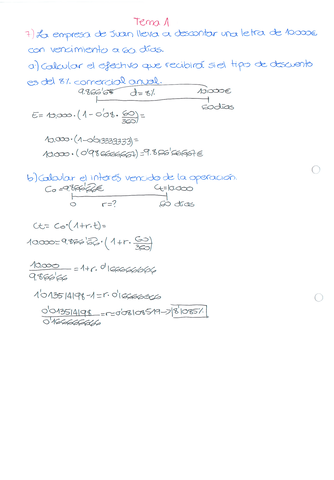 Tema 1
7) La empresa de Juan lleva a descontar una letra de 10.000€
con vencimiento a 60 días.
a) Calcular el efectivo que recibirá si el tipo de descuento
es del 8% comercial anual.
9.866'66 d=8% 10.000€
60 días
E= 10.000·(1-0'08·60/360)=
10.000·(1-0'013333333)=
10.000·(0'986666667)=9.866'666667€
b) Calcular el interés vencido de la operación
Co=9.866'66€ Ct=10.000
0 r=? 60 días
Ct= Co·(1+r·t)=
10.000=9.866'66·(1+r·60/360)
10.000/9.866'66=1+r·0'166666666
1'013514198-1=r·0'166666666
0'013514198/0'166666666=r=0'08108519→8'1085%